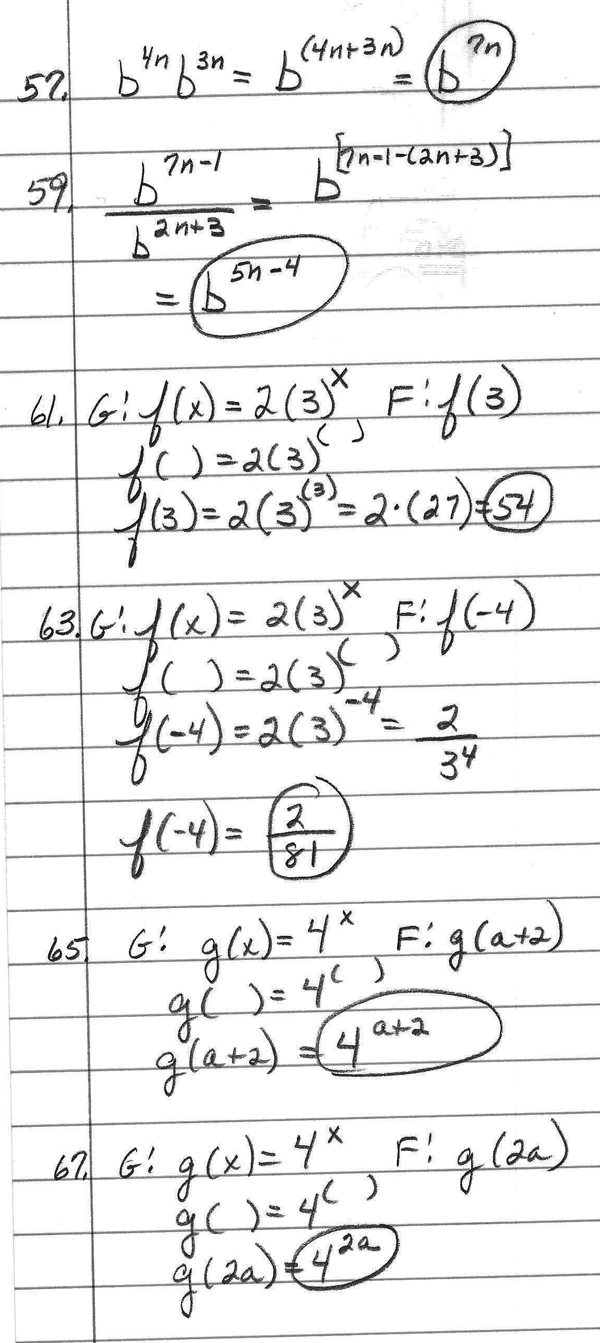 57. b^{4n} b^{3n} = b^{(4n+3n)} = b^{7n}
59. \frac{b^{7n-1}}{b^{2n+3}} = b^{[7n-1-(2n+3)]}
= b^{5n-4}
61. G: f(x) = 2(3)^x F: f(3)
f( ) = 2(3)^{( )}
f(3) = 2(3)^{(3)} = 2·(27) = 54
63. G: f(x) = 2(3)^x F: f(-4)
f( ) = 2(3)^{( )}
f(-4) = 2(3)^{-4} = \frac{2}{3^4}
f(-4) = \frac{2}{81}
65. G: g(x) = 4^x F: g(a+2)
g( ) = 4^{( )}
g(a+2) = 4^{a+2}
67. G: g(x) = 4^x F: g(2a)
g( ) = 4^{( )}
g(2a) = 4^{2a}